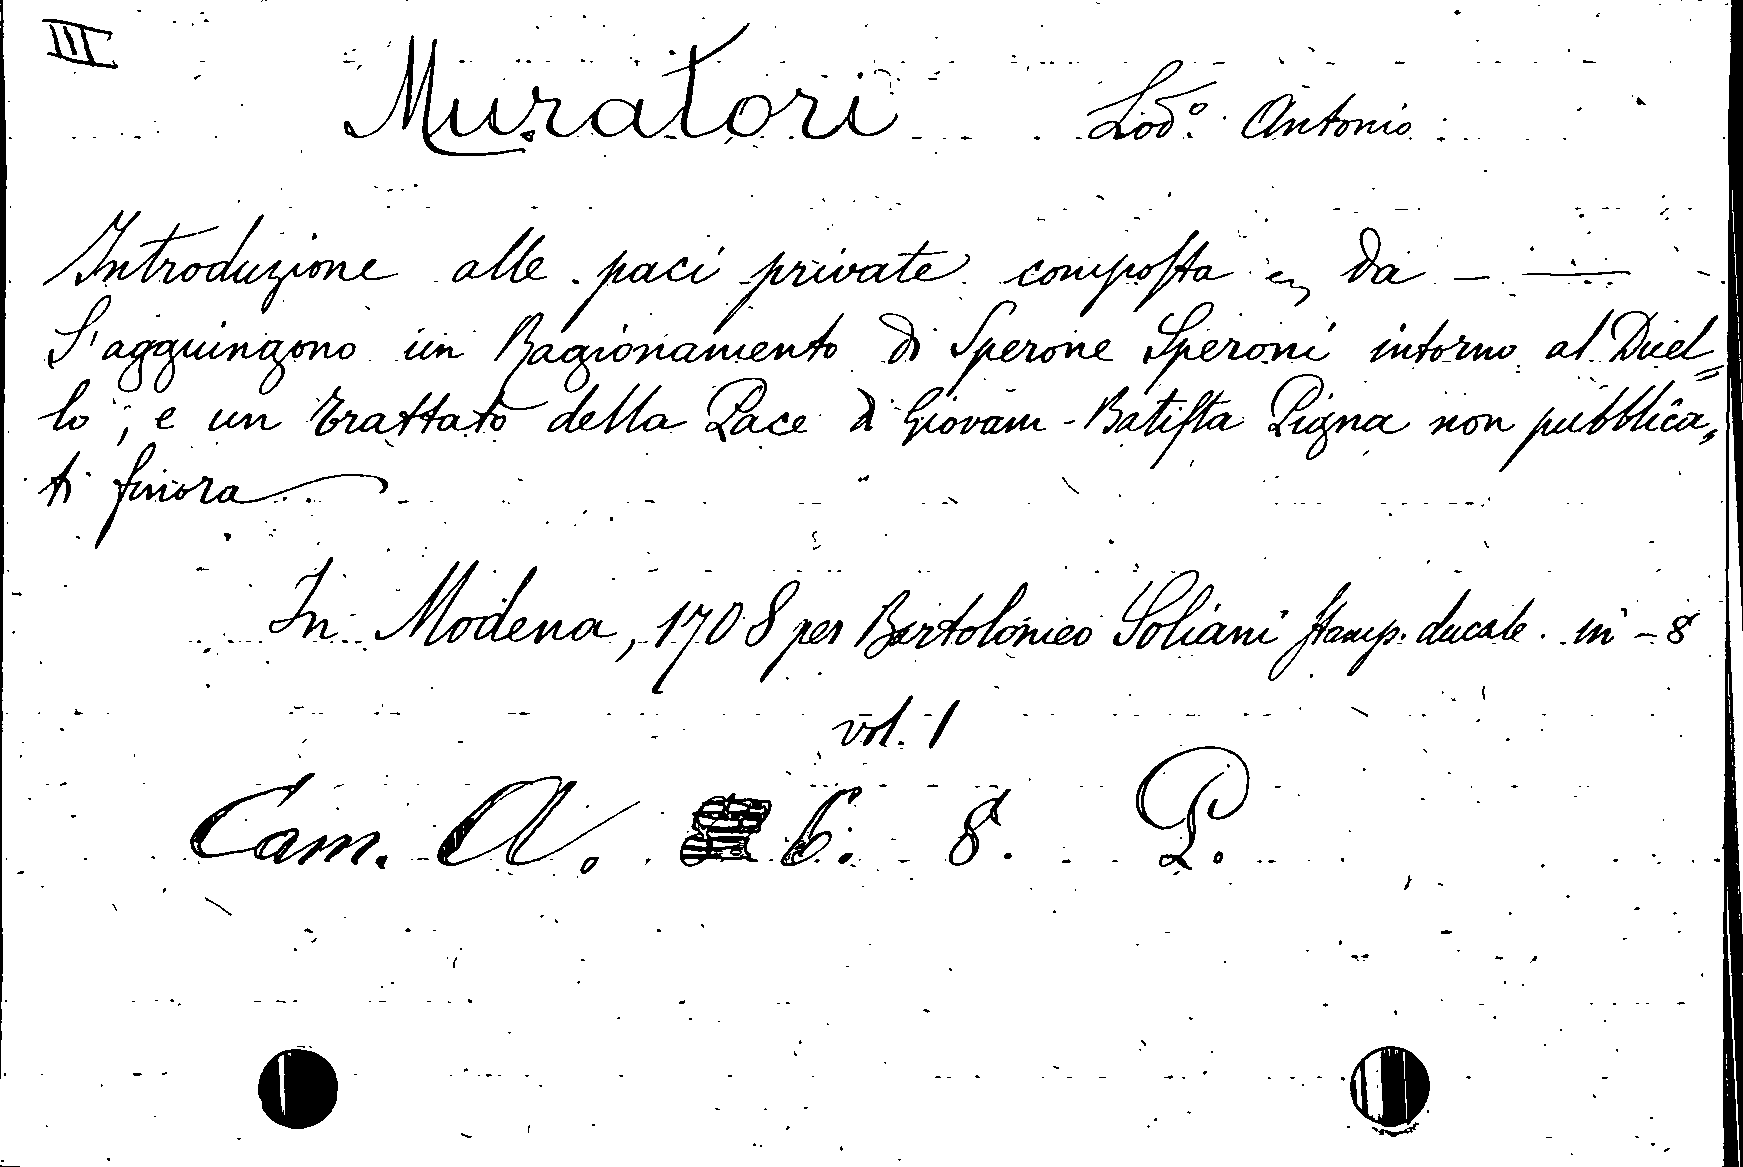 III
Muratori Lodº. Antonio
Introduzione alle paci private composta da — —
S'aggiungono un Ragionamento di Sperone Speroni intorno al Duel=
lo, e un trattato della Pace di Giovam-Batista Pigna non pubblica,
ti finora
In Modena, 1708 per Bartolomeo Soliani stamp. ducale. in-8
vol. 1
Cam. A. 6. 8. P.